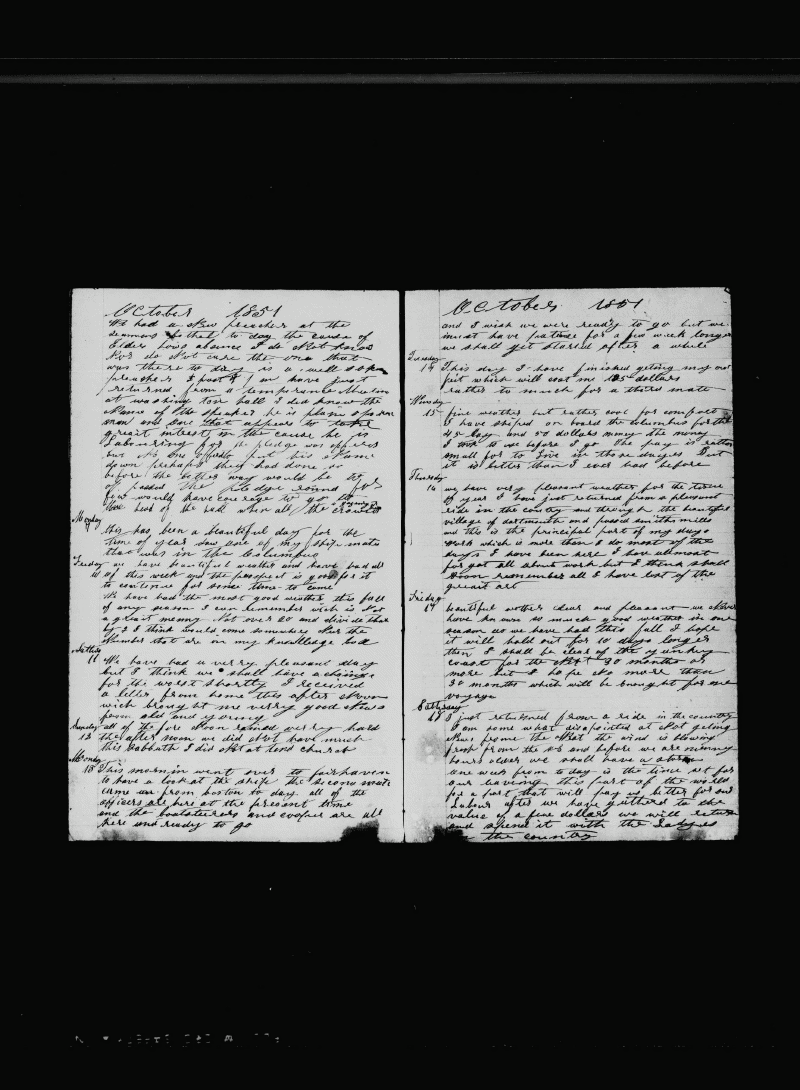 October 1851
We had a New preacher at the
to day the cause of
Elder absence I do Not know
Nor do Not care the one that
was there to day is a well
preacher I have just
returned from a temperance
at washing ton hall I did know the
Name of the speaker he is plain
man and one that appears to take
great interest in the cause he is
Labouring for the pledge was offered
but No one put his Name
down perhaps they had done so
before the better way would be to
of passed the pledge round for
few would have courage to go to
the head of the hall when all the crowd
Monday
this has been a beautiful day for the
time of year saw one of my ship mates
that was in the Columbus
Tuesday we have beautiful weather and have had all
of this week and the prospect is good for it
to continue for some time to come
We have had the most good weather this fall
of any season I can remember wich is Not
a great many Not over 20 and divide that
by 2 I think would come somewhere Near the
Number that are on my knowlledge
11 We have had a verry pleasant day
but I think we shall have a change
for the worst shortly I received
a letter from home this after Noon
wich brought me verry good News
from old and young
Sunday all of the fore Noon rained verry hard
12 the after Noon we did Not have much
this Sabbath I did Not attend church
Monday
13 This mornin went over to fairhaven
to have a look at the ship the second mate
came up from boston to day all of the
officers are here at the present time
and the boatsteerers and cooper are all
here and ready to go
October 1851
and I wish we were ready to go but we
must have patience for a few week longer
we shall get started after a while
Tuesday
14 This day I have finished geting my out
fit which will cost me 105 dollars
rather to much for a third mate
15 fine weather but rather cool for comfort
I have shiped on board the Columbus for the
45 Lay and 50 dollars the money
I took to use before I go the pay is rather
small for to Live in those days But
it is better than I ever had before
Thursday
16 we have very pleasant weather for the time
of year I have just returned from a pleasant
ride in the country and through the beautiful
village of dartmouth and passed smiths mills
and this is the principal part of my days
work which is more than I do most of the
days I have been here I have allmost
for got all about work but I think shall
soon remember all I have lost of the
great art
Friday
17 beautiful wether clear and pleasant we Never
have known so much good weather in one
season as we have had this fall I hope
it will hold out for 10 days longer
then I shall be clear of the yankey
coast for the Next 30 months or
more but I hope No more than
30 months which will be enought for one
voyage
Saturday
18 I just returned from a ride in the country
I am some what disapointed at Not geting
News frome the the wind is blowing
fresh from the and before we are minny
hours older we shall have a storm
one week from to day is the time set for
our leaving this part of the world
for a part that will pay us better for our
Labour after we have gathered to the
value of a few dollars we will return
and spend it with the Ladyes
in the country